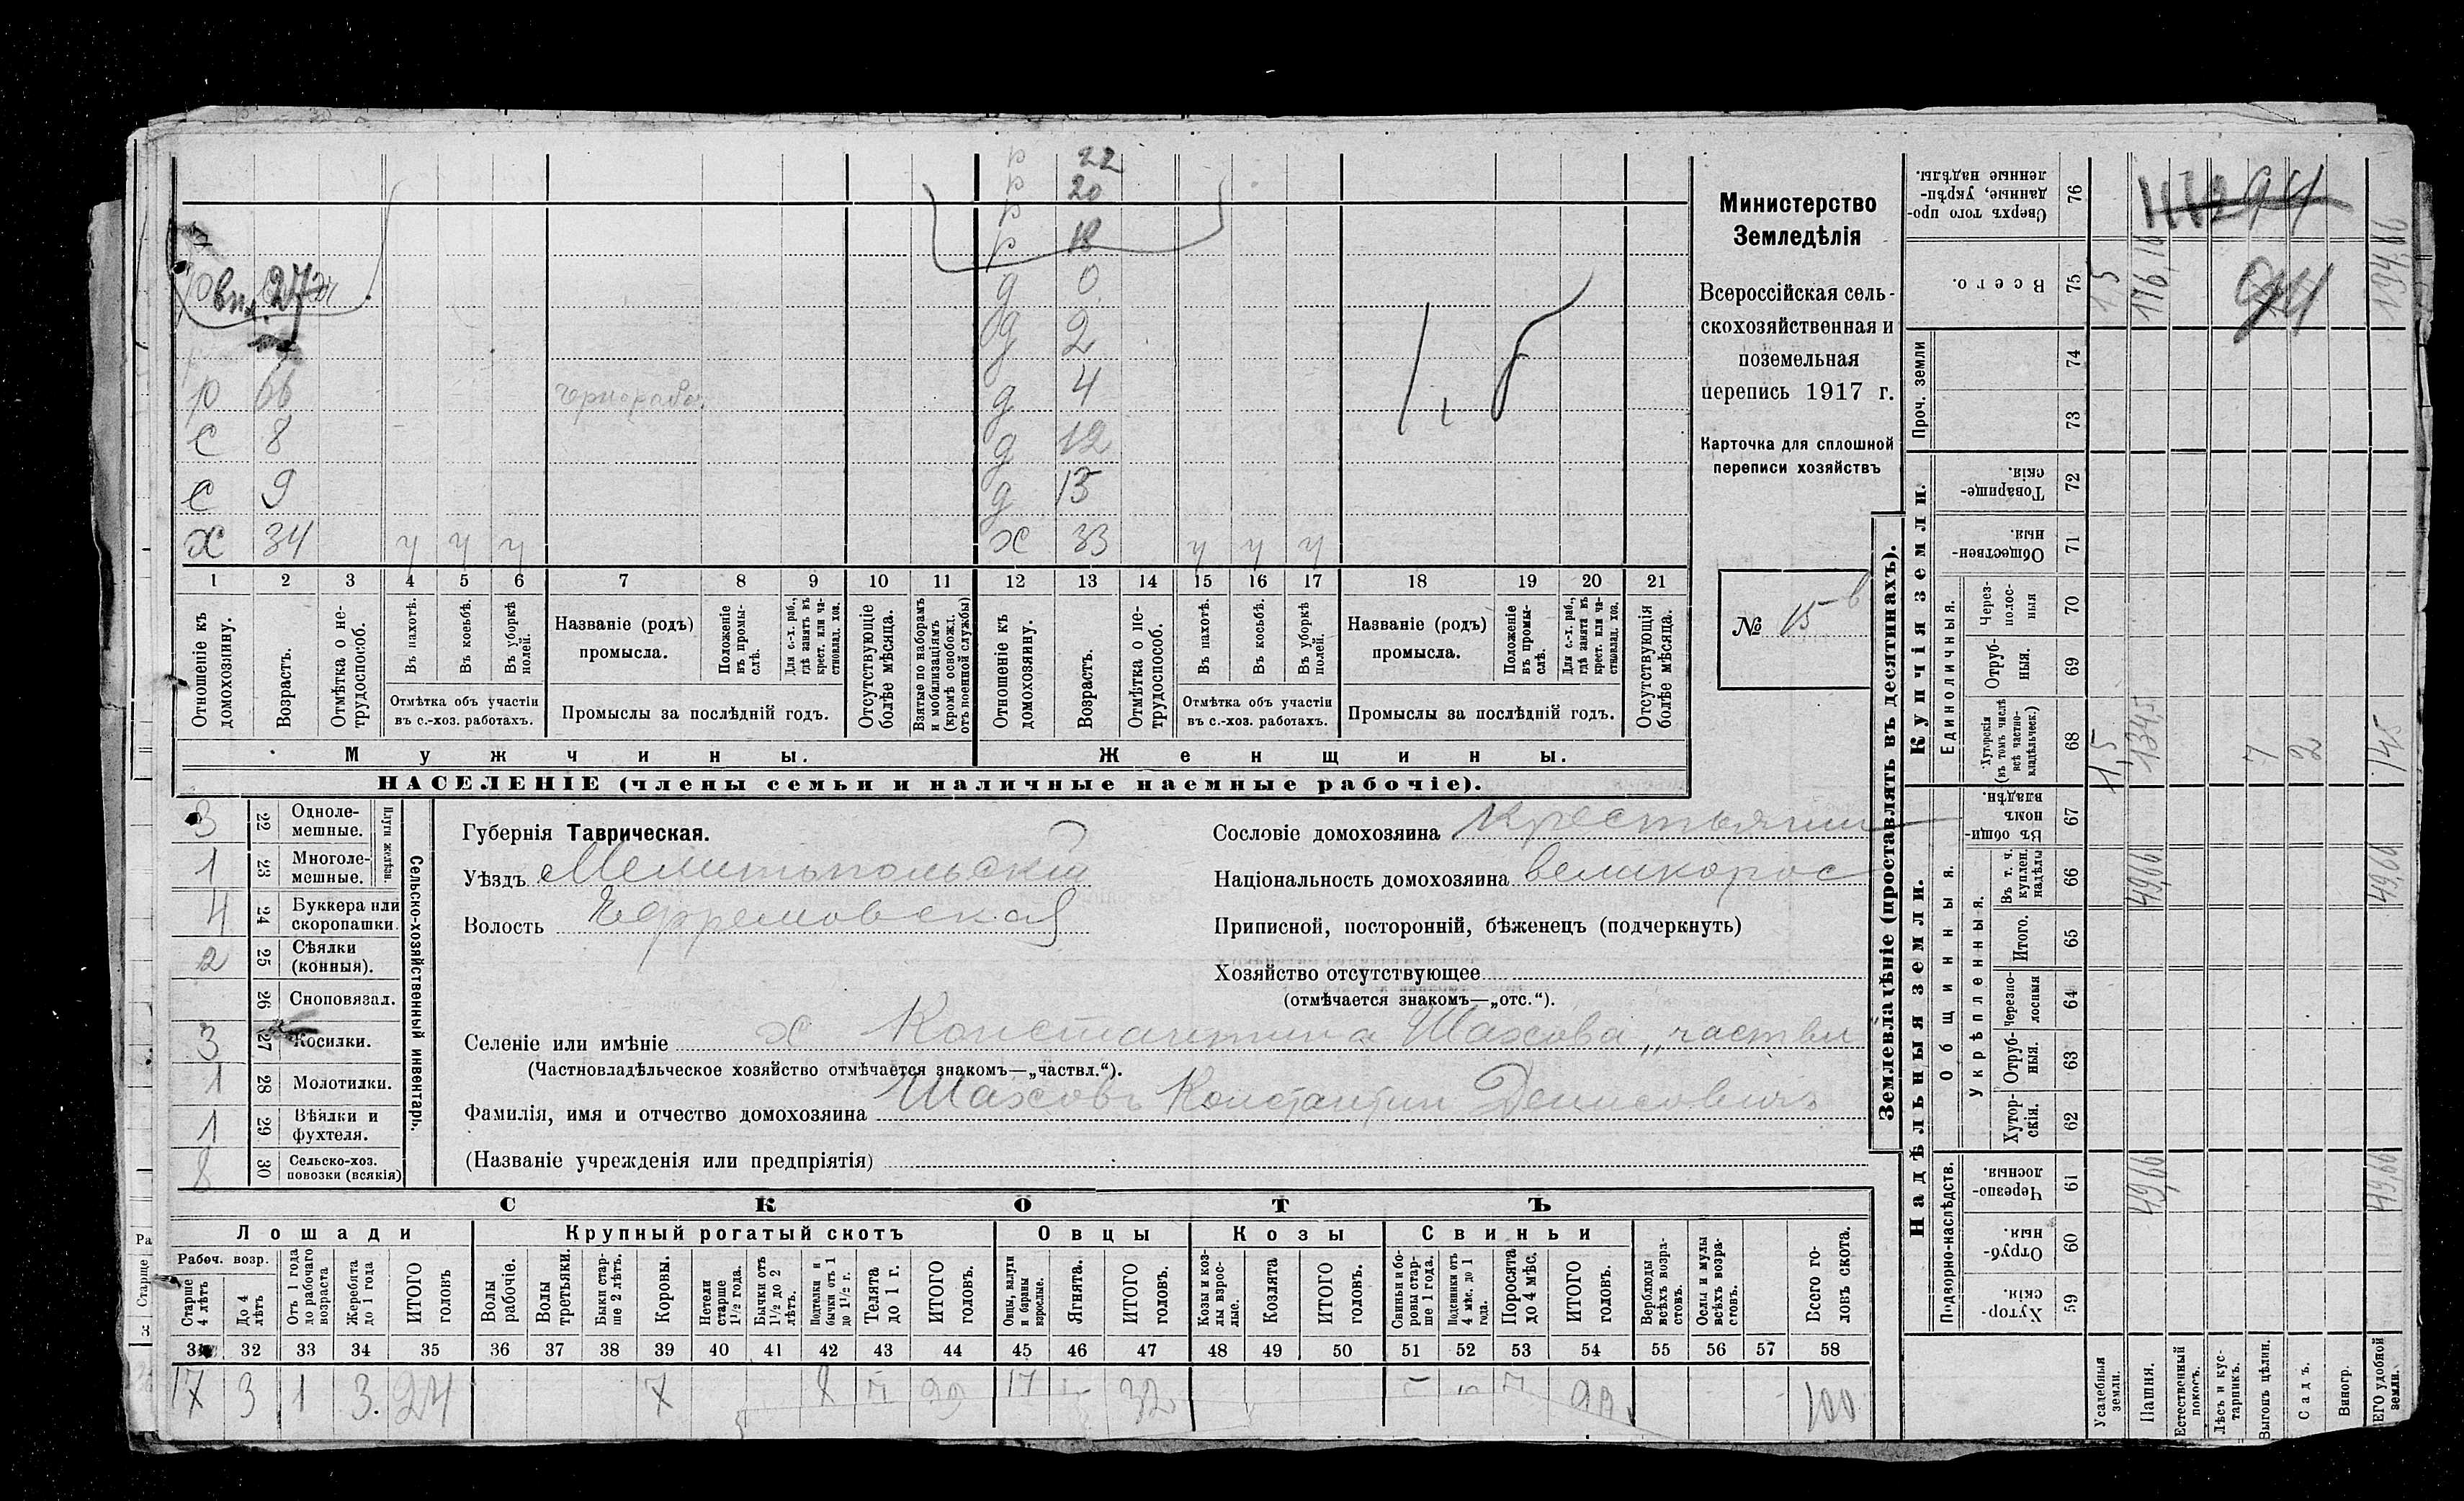 р 22
р 20
р 18
д 0
д 2
р 66 чернорабоч. д 4
с 8 д 12
с 9 д 13
х 34 ч ч ч х 33 ч ч ч
1 2 3 4 5 6 7 8 9 10 11 12 13 14 15 16 17 18 19 20 21
Отношеніе къ домохозяину.
Возрастъ.
Отмѣтка о нетрудоспособ.
Въ пахотѣ.
Въ косьбѣ.
Въ уборкѣ полей.
Отмѣтка объ участіи въ с.-хоз. работахъ.
Названіе (родъ) промысла.
Положеніе въ промыслѣ.
Для с.-х. раб., гдѣ занятъ въ крест. или частновлад. хоз.
Промыслы за послѣдній годъ.
Отсутствующіе болѣе мѣсяца.
Взятые по наборамъ и мобилизаціямъ (кромѣ освобожд. отъ военной службы)
Отношеніе къ домохозяину.
Возрастъ.
Отмѣтка о нетрудоспособ.
Въ пахотѣ.
Въ косьбѣ.
Въ уборкѣ полей.
Отмѣтка объ участіи въ с.-хоз. работахъ.
Названіе (родъ) промысла.
Положеніе въ промыслѣ.
Для с.-х. раб., гдѣ занята въ крест. или частновлад. хоз.
Промыслы за послѣдній годъ.
Отсутствующія болѣе мѣсяца.
Мужчины. Женщины.
НАСЕЛЕНІЕ (члены семьи и наличные наемные рабочіе).
Министерство
Земледѣлія
Всероссійская сель-
скохозяйственная и
поземельная
перепись 1917 г.
Карточка для сплошной
переписи хозяйствъ
№ 15 в
3 22 Одноле-мешные.
1 23 Многоле-мешные.
Плуги желѣзн.
4 24 Буккера или скоропашки.
2 25 Сѣялки (конныя).
26 Сноповязал.
3 27 Косилки.
1 28 Молотилки.
1 29 Вѣялки и фухтеля.
8 30 Сельско-хоз. повозки (всякія)
Сельско-хозяйственный инвентарь.
Губернія Таврическая.
Уѣздъ Мелитопольскій
Волость Ефремовская
Сословіе домохозяина крестьянин
Національность домохозяина великорос
Приписной, посторонній, бѣженецъ (подчеркнуть)
Хозяйство отсутствующее
(отмѣчается знакомъ—„отс.“).
Селеніе или имѣніе х Константина Шахова „частвл
(Частновладѣльческое хозяйство отмѣчается знакомъ—„частвл.“).
Фамилія, имя и отчество домохозяина Шаховъ Константин Денисовичъ
(Названіе учрежденія или предпріятія)
СКОТЪ
Лошади Крупный рогатый скотъ Овцы Козы Свиньи
Рабоч. возр.
Старше 4 лѣтъ
До 4 лѣтъ
Отъ 1 года до рабочаго возраста
Жеребята до 1 года
ИТОГО головъ
Волы рабочіе.
Волы третьяки.
Быки старше 2 лѣтъ.
Коровы.
Нетели старше 1½ года.
Бычки отъ 1½ до 2 лѣтъ.
Подтелки и бычки отъ 1 до 1½ г.
Телята до 1 г.
ИТОГО головъ.
Овцы, валухи и бараны взрослые.
Ягнята.
ИТОГО головъ.
Козы и козлы взрослые.
Козлята
ИТОГО головъ.
Свиньи и боровы старше 1 года.
Подсвинки отъ 4 мѣс. до 1 года.
Поросята до 4 мѣс.
ИТОГО головъ.
Верблюды всѣхъ возрастовъ.
Ослы и мулы всѣхъ возрастовъ.
Всего головъ скота.
31 32 33 34 35 36 37 38 39 40 41 42 43 44 45 46 47 48 49 50 51 52 53 54 55 56 57 58
17 3 1 3. 24 7 17 32 100
Землевладѣніе (проставлять въ десятинахъ).
Купчія земли.
Надѣльныя земли.
Сверхъ того проданные, укрѣпленные надѣлы. 76
Всего. 75 1,5 176,16 194,66
Проч. земли 74 73
Товарищескія. 72
Общественныя. 71
Единоличныя.
Черезполосныя 70
Отрубныя. 69
Хуторскія (въ томъ числѣ всѣ частновладѣльческ.) 68 1,5 134,5 7 2 145
Общинныя.
Въ общинномъ владѣн. 67
Въ т. ч. куплен. надѣлы 66 49,66 49,66
Укрѣпленныя.
Итого. 65
Черезполосныя 64
Отрубныя. 63
Хуторскія. 62
Подворно-наслѣдств.
Черезполосныя. 61 49,66 49,66
Отрубныя. 60
Хуторскія. 59
Усадебныя земли.
Пашня.
Естественный покосъ.
Лѣсъ и кустарникъ.
Выгонъ цѣлин.
Садъ.
Виногр.
ЕГО удобной земли.